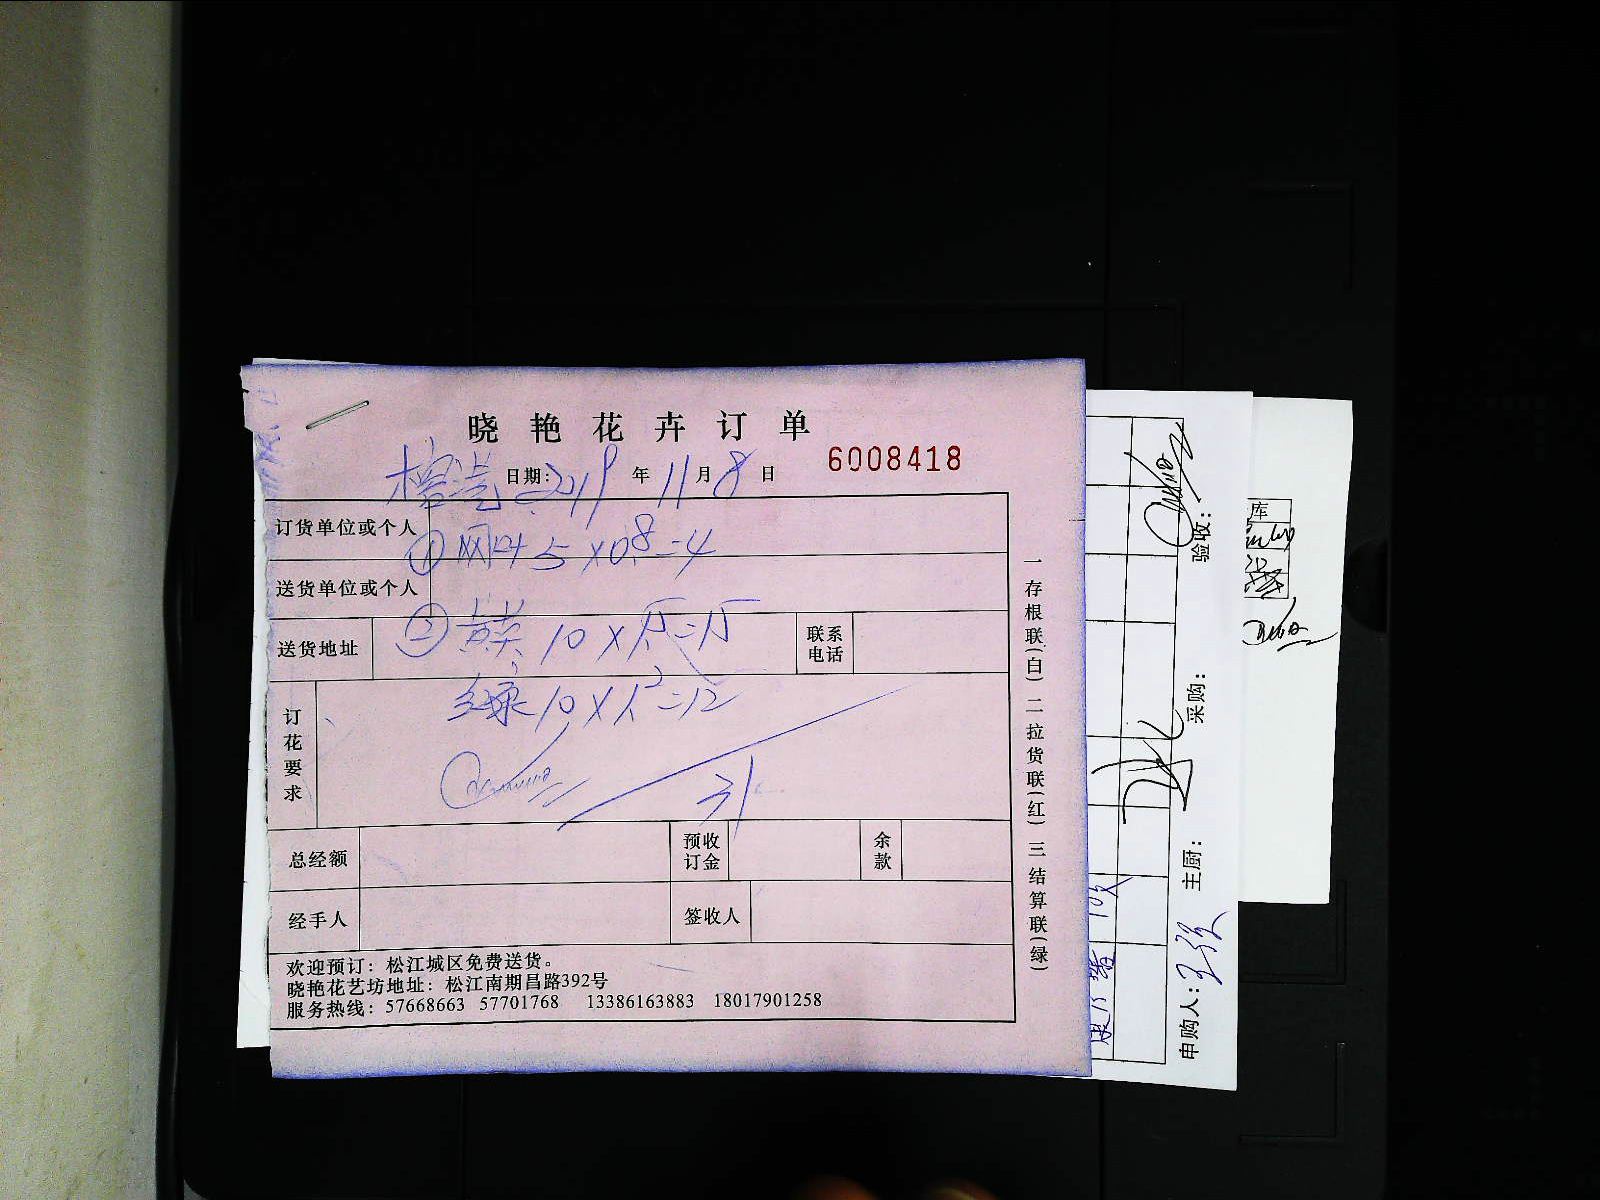 晓艳花卉订单
日期: 2019年11月8日
6008418
订货单位或个人
① 5×0.8=4
送货单位或个人
送货地址
② 黄英 10×1.5=15
联系电话
绿 10×1.2=12
订花要求
31
总经额
预收订金
余款
经手人
签收人
欢迎预订：松江城区免费送货。
晓艳花艺坊地址：松江南期昌路392号
服务热线：57668663 57701768 13386163883 18017901258
一存根联(白)二拉货联(红)三结算联(绿)
验收：
采购：
主厨：
申购人：
库